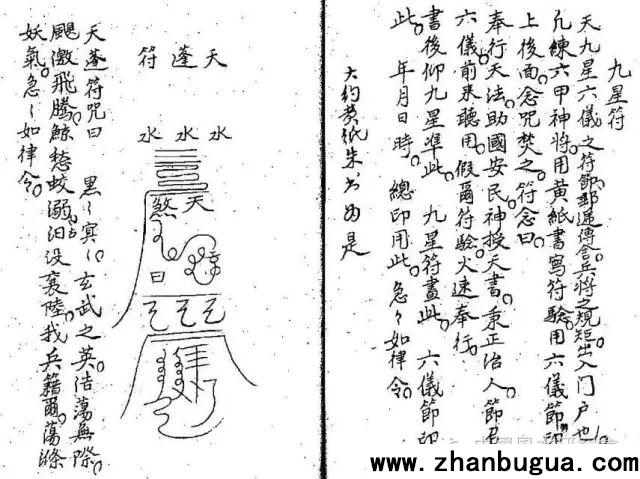 九星符
天九星六儀之符節郵遞傳令兵將之規矩出入門户也
凡練六甲神將用黄紙書寫符驗用六儀節印
上後面念咒焚之符念曰
奉行天法助國安民神授天書秉正治人節召
六儀前来聽用假爾符驗火速奉行
書後仰九星準此 九星符畫此 六儀節印
此 年月日時 總印用此急々如律令
大約黄紙朱书为是
天蓬符
水水水
天煞
日
天蓬符咒曰 黑々㝠々玄武之英浩蕩無際
颶激飛騰鯨愁蛟溺汩没襄陸我兵籍爾蕩滌
妖氣急々如律令
www.zhanbugua.com